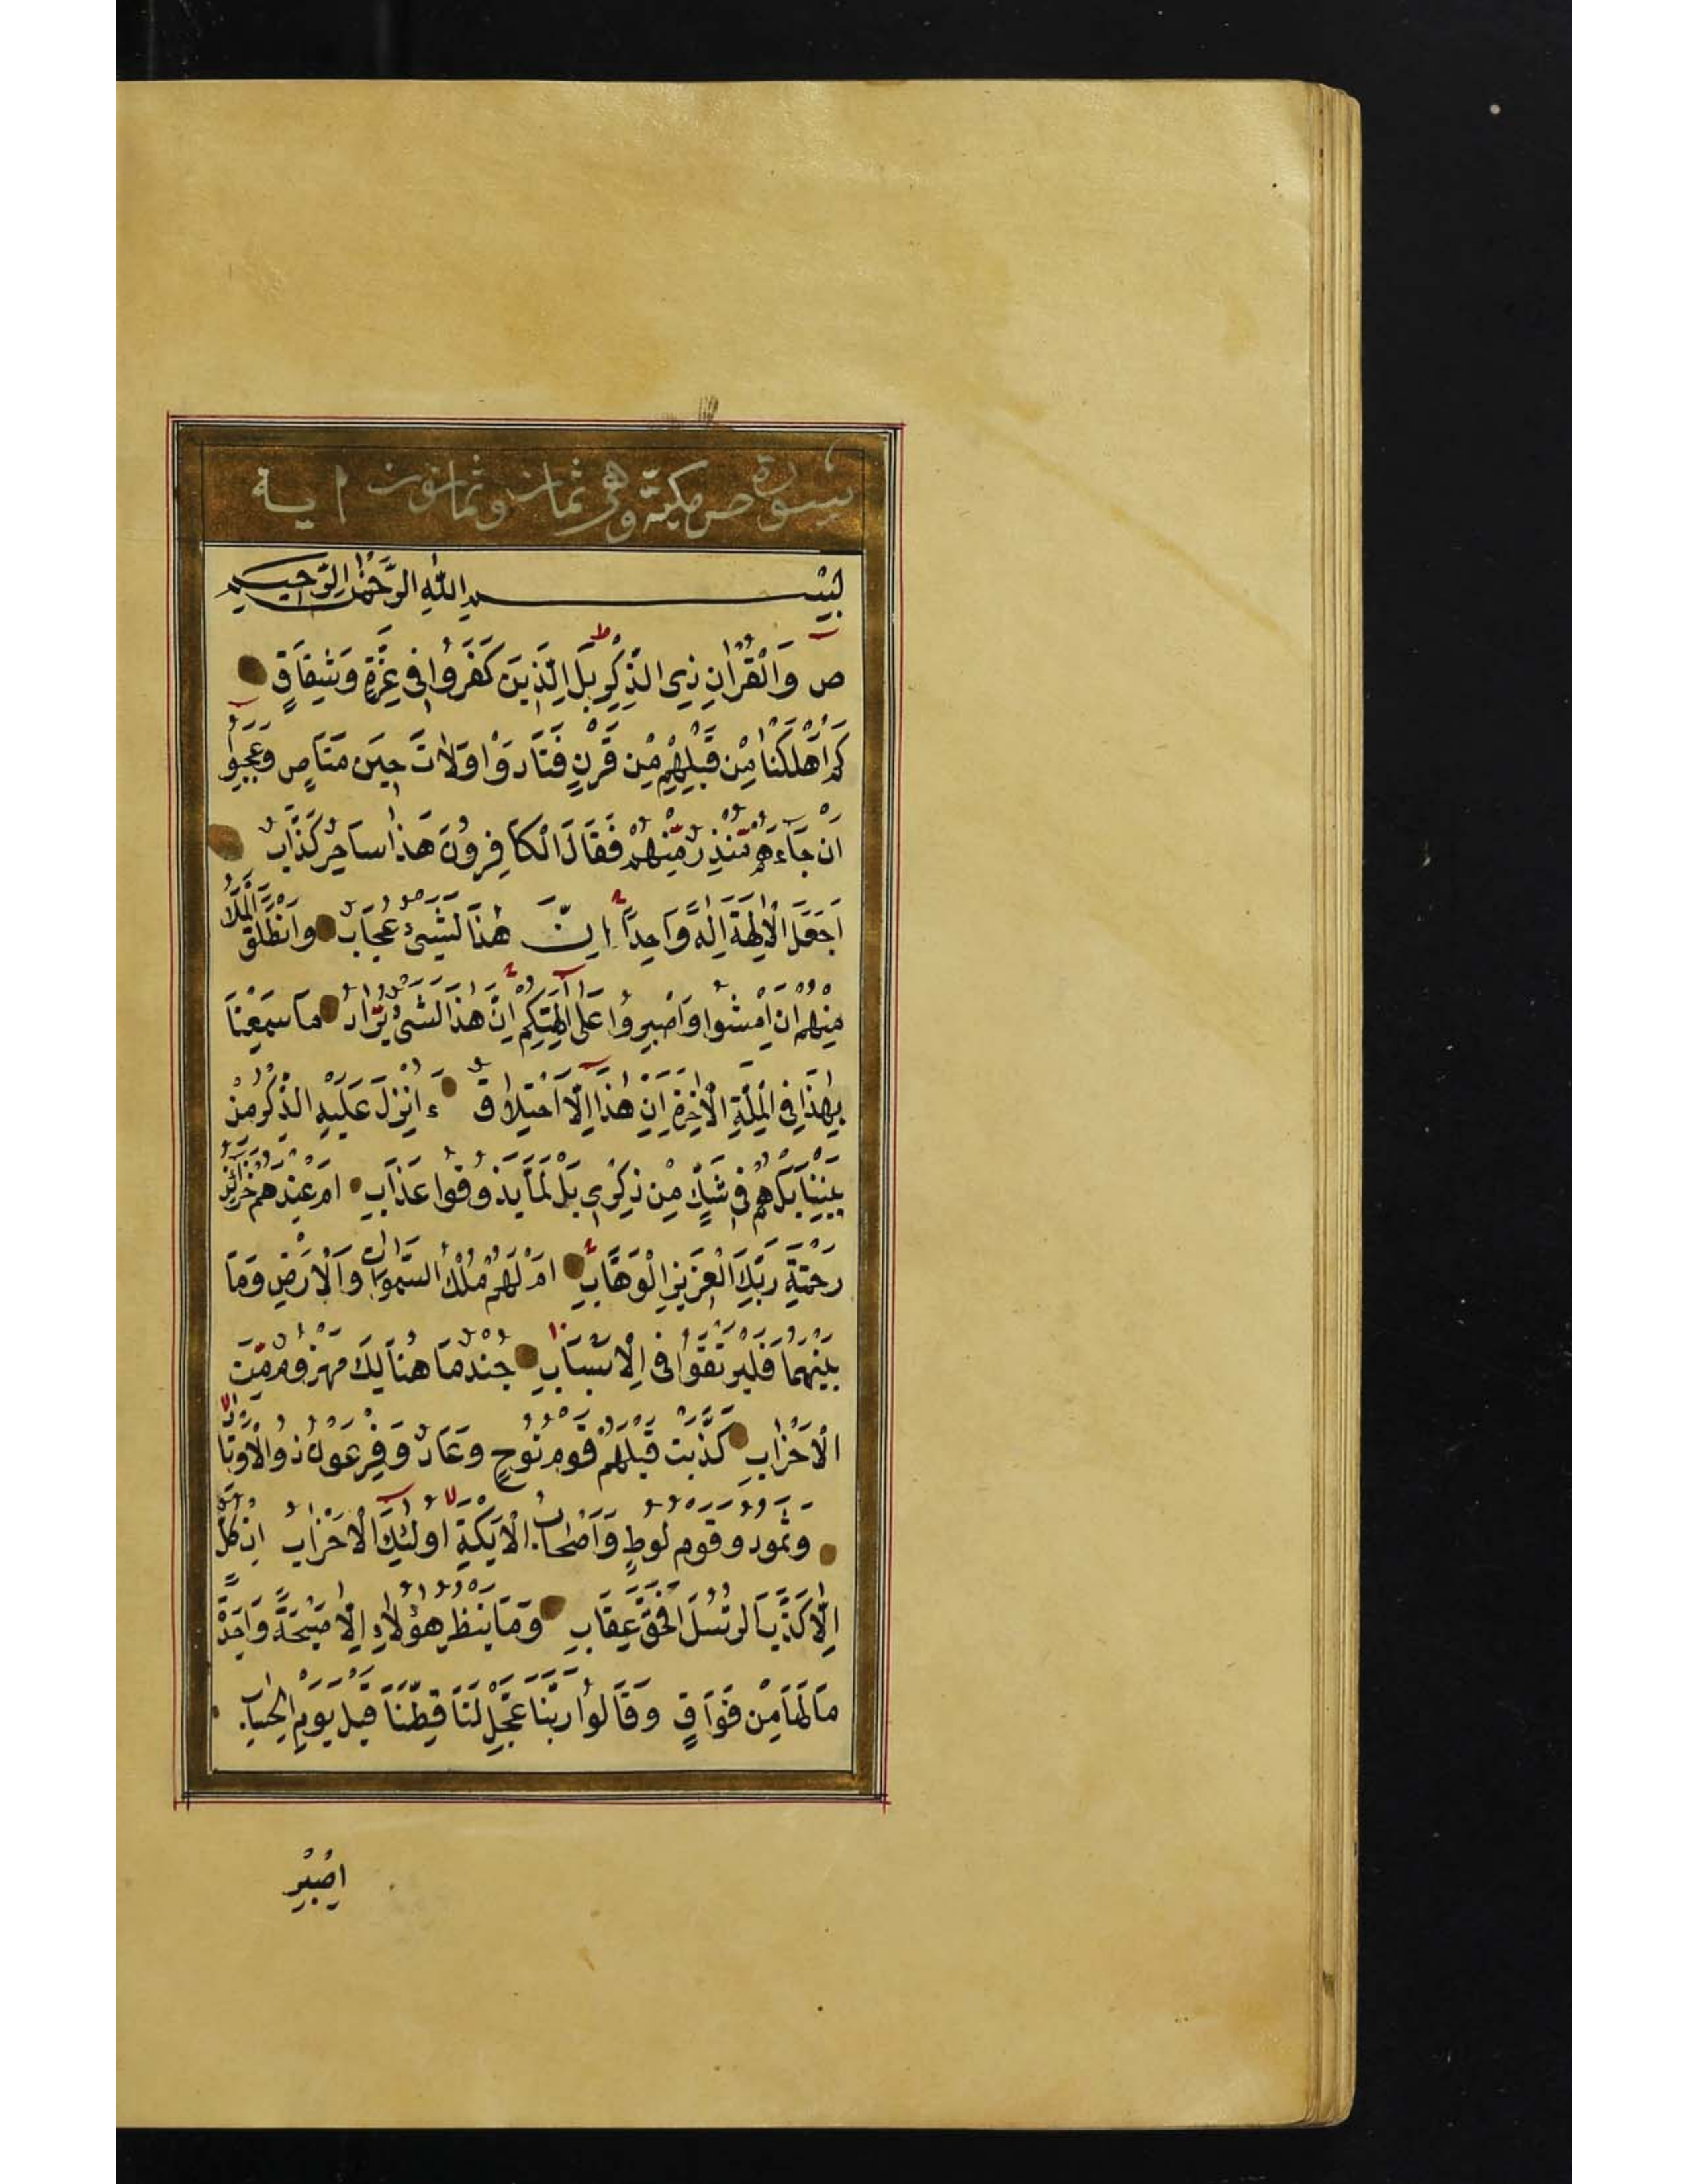 سورة ص مكية وهى ثمان وثمانون اية
بِسْمِ اللّٰهِ الرَّحْمٰنِ الرَّحِيمِ
ص وَالْقُرْاٰنِ ذِى الذِّكْرِ بَلِ الَّذِينَ كَفَرُوا فِى عِزَّةٍ وَشِقَاقٍ
كَمْ اَهْلَكْنَا مِنْ قَبْلِهِمْ مِنْ قَرْنٍ فَنَادَوْا وَلَاتَ حِينَ مَنَاصٍ وَعَجِبُوا
اَنْ جَاءَهُمْ مُنْذِرٌ مِنْهُمْ فَقَالَ الْكَافِرُونَ هَذَا سَاحِرٌ كَذَّابٌ
اَجَعَلَ الْاٰلِهَةَ اِلٰهًا وَاحِدًا اِنَّ هٰذَا لَشَىْءٌ عُجَابٌ وَانْطَلَقَ الْمَلَاُ
مِنْهُمْ اَنِ امْشُوا وَاصْبِرُوا عَلٰى اٰلِهَتِكُمْ اِنَّ هٰذَا لَشَىْءٌ يُرَادُ مَا سَمِعْنَا
بِهٰذَا فِى الْمِلَّةِ الْاٰخِرَةِ اِنْ هٰذَا اِلَّا اخْتِلَاقٌ ءَاُنْزِلَ عَلَيْهِ الذِّكْرُ مِنْ
بَيْنِنَا بَلْ هُمْ فِى شَكٍّ مِنْ ذِكْرِى بَلْ لَمَّا يَذُوقُوا عَذَابِ اَمْ عِنْدَهُمْ خَزَائِنُ
رَحْمَةِ رَبِّكَ الْعَزِيزِ الْوَهَّابِ اَمْ لَهُمْ مُلْكُ السَّمٰوَاتِ وَالْاَرْضِ وَمَا
بَيْنَهُمَا فَلْيَرْتَقُوا فِى الْاَسْبَابِ جُنْدٌ مَا هُنَالِكَ مَهْزُومٌ مِنَ
الْاَحْزَابِ كَذَّبَتْ قَبْلَهُمْ قَوْمُ نُوحٍ وَعَادٌ وَفِرْعَوْنُ ذُو الْاَوْتَادِ
وَثَمُودُ وَقَوْمُ لُوطٍ وَاَصْحَابُ الْاَيْكَةِ اُولٰئِكَ الْاَحْزَابُ اِنْ كُلٌّ
اِلَّا كَذَّبَ الرُّسُلَ فَحَقَّ عِقَابِ وَمَا يَنْظُرُ هٰؤُلَاءِ اِلَّا صَيْحَةً وَاحِدَةً
مَا لَهَا مِنْ فَوَاقٍ وَقَالُوا رَبَّنَا عَجِّلْ لَنَا قِطَّنَا قَبْلَ يَوْمِ الْحِسَابِ
اِصْبِرْ